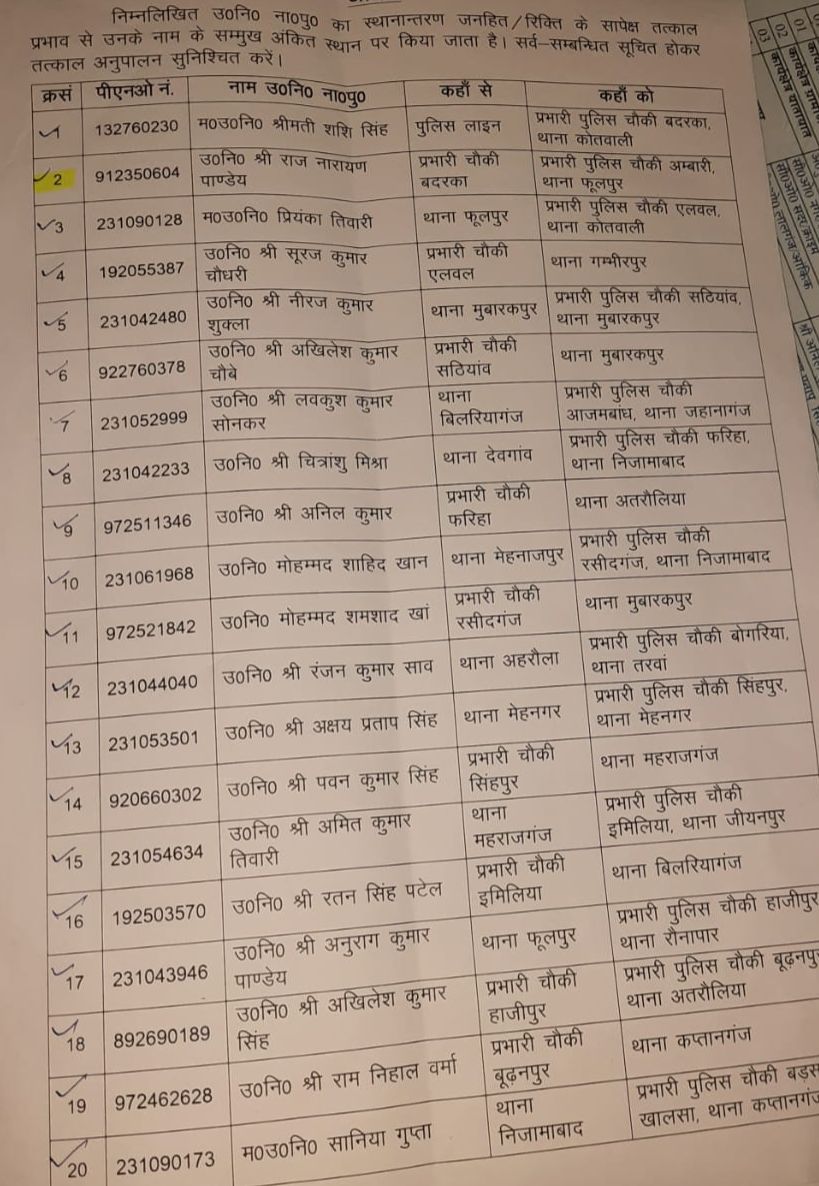 निम्नलिखित उ0नि0 ना0पु0 का स्थानान्तरण जनहित/रिक्ति के सापेक्ष तत्काल
प्रभाव से उनके नाम के सम्मुख अंकित स्थान पर किया जाता है। सर्व-सम्बन्धित सूचित होकर
तत्काल अनुपालन सुनिश्चित करें।
क्रसं पीएनओ नं. नाम उ0नि0 ना0पु0 कहाँ से कहाँ को
1 132760230 म0उ0नि0 श्रीमती शशि सिंह पुलिस लाइन प्रभारी पुलिस चौकी बदरका,
थाना कोतवाली
2 912350604 उ0नि0 श्री राज नारायण प्रभारी चौकी प्रभारी पुलिस चौकी अम्बारी,
पाण्डेय बदरका थाना फूलपुर
3 231090128 म0उ0नि0 प्रियंका तिवारी थाना फूलपुर प्रभारी पुलिस चौकी एलवल,
थाना कोतवाली
4 192055387 उ0नि0 श्री सूरज कुमार प्रभारी चौकी थाना गम्भीरपुर
चौधरी एलवल
5 231042480 उ0नि0 श्री नीरज कुमार थाना मुबारकपुर प्रभारी पुलिस चौकी सठियांव,
शुक्ला थाना मुबारकपुर
6 922760378 उ0नि0 श्री अखिलेश कुमार प्रभारी चौकी थाना मुबारकपुर
चौबे सठियांव
7 231052999 उ0नि0 श्री लवकुश कुमार थाना प्रभारी पुलिस चौकी
सोनकर बिलरियागंज आजमबांध, थाना जहानागंज
8 231042233 उ0नि0 श्री चित्रांशु मिश्रा थाना देवगांव प्रभारी पुलिस चौकी फरिहा,
थाना निजामाबाद
9 972511346 उ0नि0 श्री अनिल कुमार प्रभारी चौकी थाना अतरौलिया
फरिहा
10 231061968 उ0नि0 मोहम्मद शाहिद खान थाना मेहनाजपुर प्रभारी पुलिस चौकी
रसीदगंज, थाना निजामाबाद
11 972521842 उ0नि0 मोहम्मद शमशाद खां प्रभारी चौकी थाना मुबारकपुर
रसीदगंज
12 231044040 उ0नि0 श्री रंजन कुमार साव थाना अहरौला प्रभारी पुलिस चौकी बोगरिया,
थाना तरवां
13 231053501 उ0नि0 श्री अक्षय प्रताप सिंह थाना मेहनगर प्रभारी पुलिस चौकी सिंहपुर,
थाना मेहनगर
14 920660302 उ0नि0 श्री पवन कुमार सिंह प्रभारी चौकी थाना महराजगंज
सिंहपुर
15 231054634 उ0नि0 श्री अमित कुमार थाना प्रभारी पुलिस चौकी
तिवारी महराजगंज इमिलिया, थाना जीयनपुर
16 192503570 उ0नि0 श्री रतन सिंह पटेल प्रभारी चौकी थाना बिलरियागंज
इमिलिया
17 231043946 उ0नि0 श्री अनुराग कुमार थाना फूलपुर प्रभारी पुलिस चौकी हाजीपुर
पाण्डेय थाना रौनापार
18 892690189 उ0नि0 श्री अखिलेश कुमार प्रभारी चौकी प्रभारी पुलिस चौकी बूढ़नपु
सिंह हाजीपुर थाना अतरौलिया
19 972462628 उ0नि0 श्री राम निहाल वर्मा प्रभारी चौकी थाना कप्तानगंज
बूढ़नपुर
20 231090173 म0उ0नि0 सानिया गुप्ता थाना प्रभारी पुलिस चौकी बड़स
निजामाबाद खालसा, थाना कप्तानगं
01
02 कार्यक्षेत्र ग्रामी
03 कार्यक्षेत्र यातायात
सी0ओ0 सदर/क्राइम
लालगंज/आंकिक